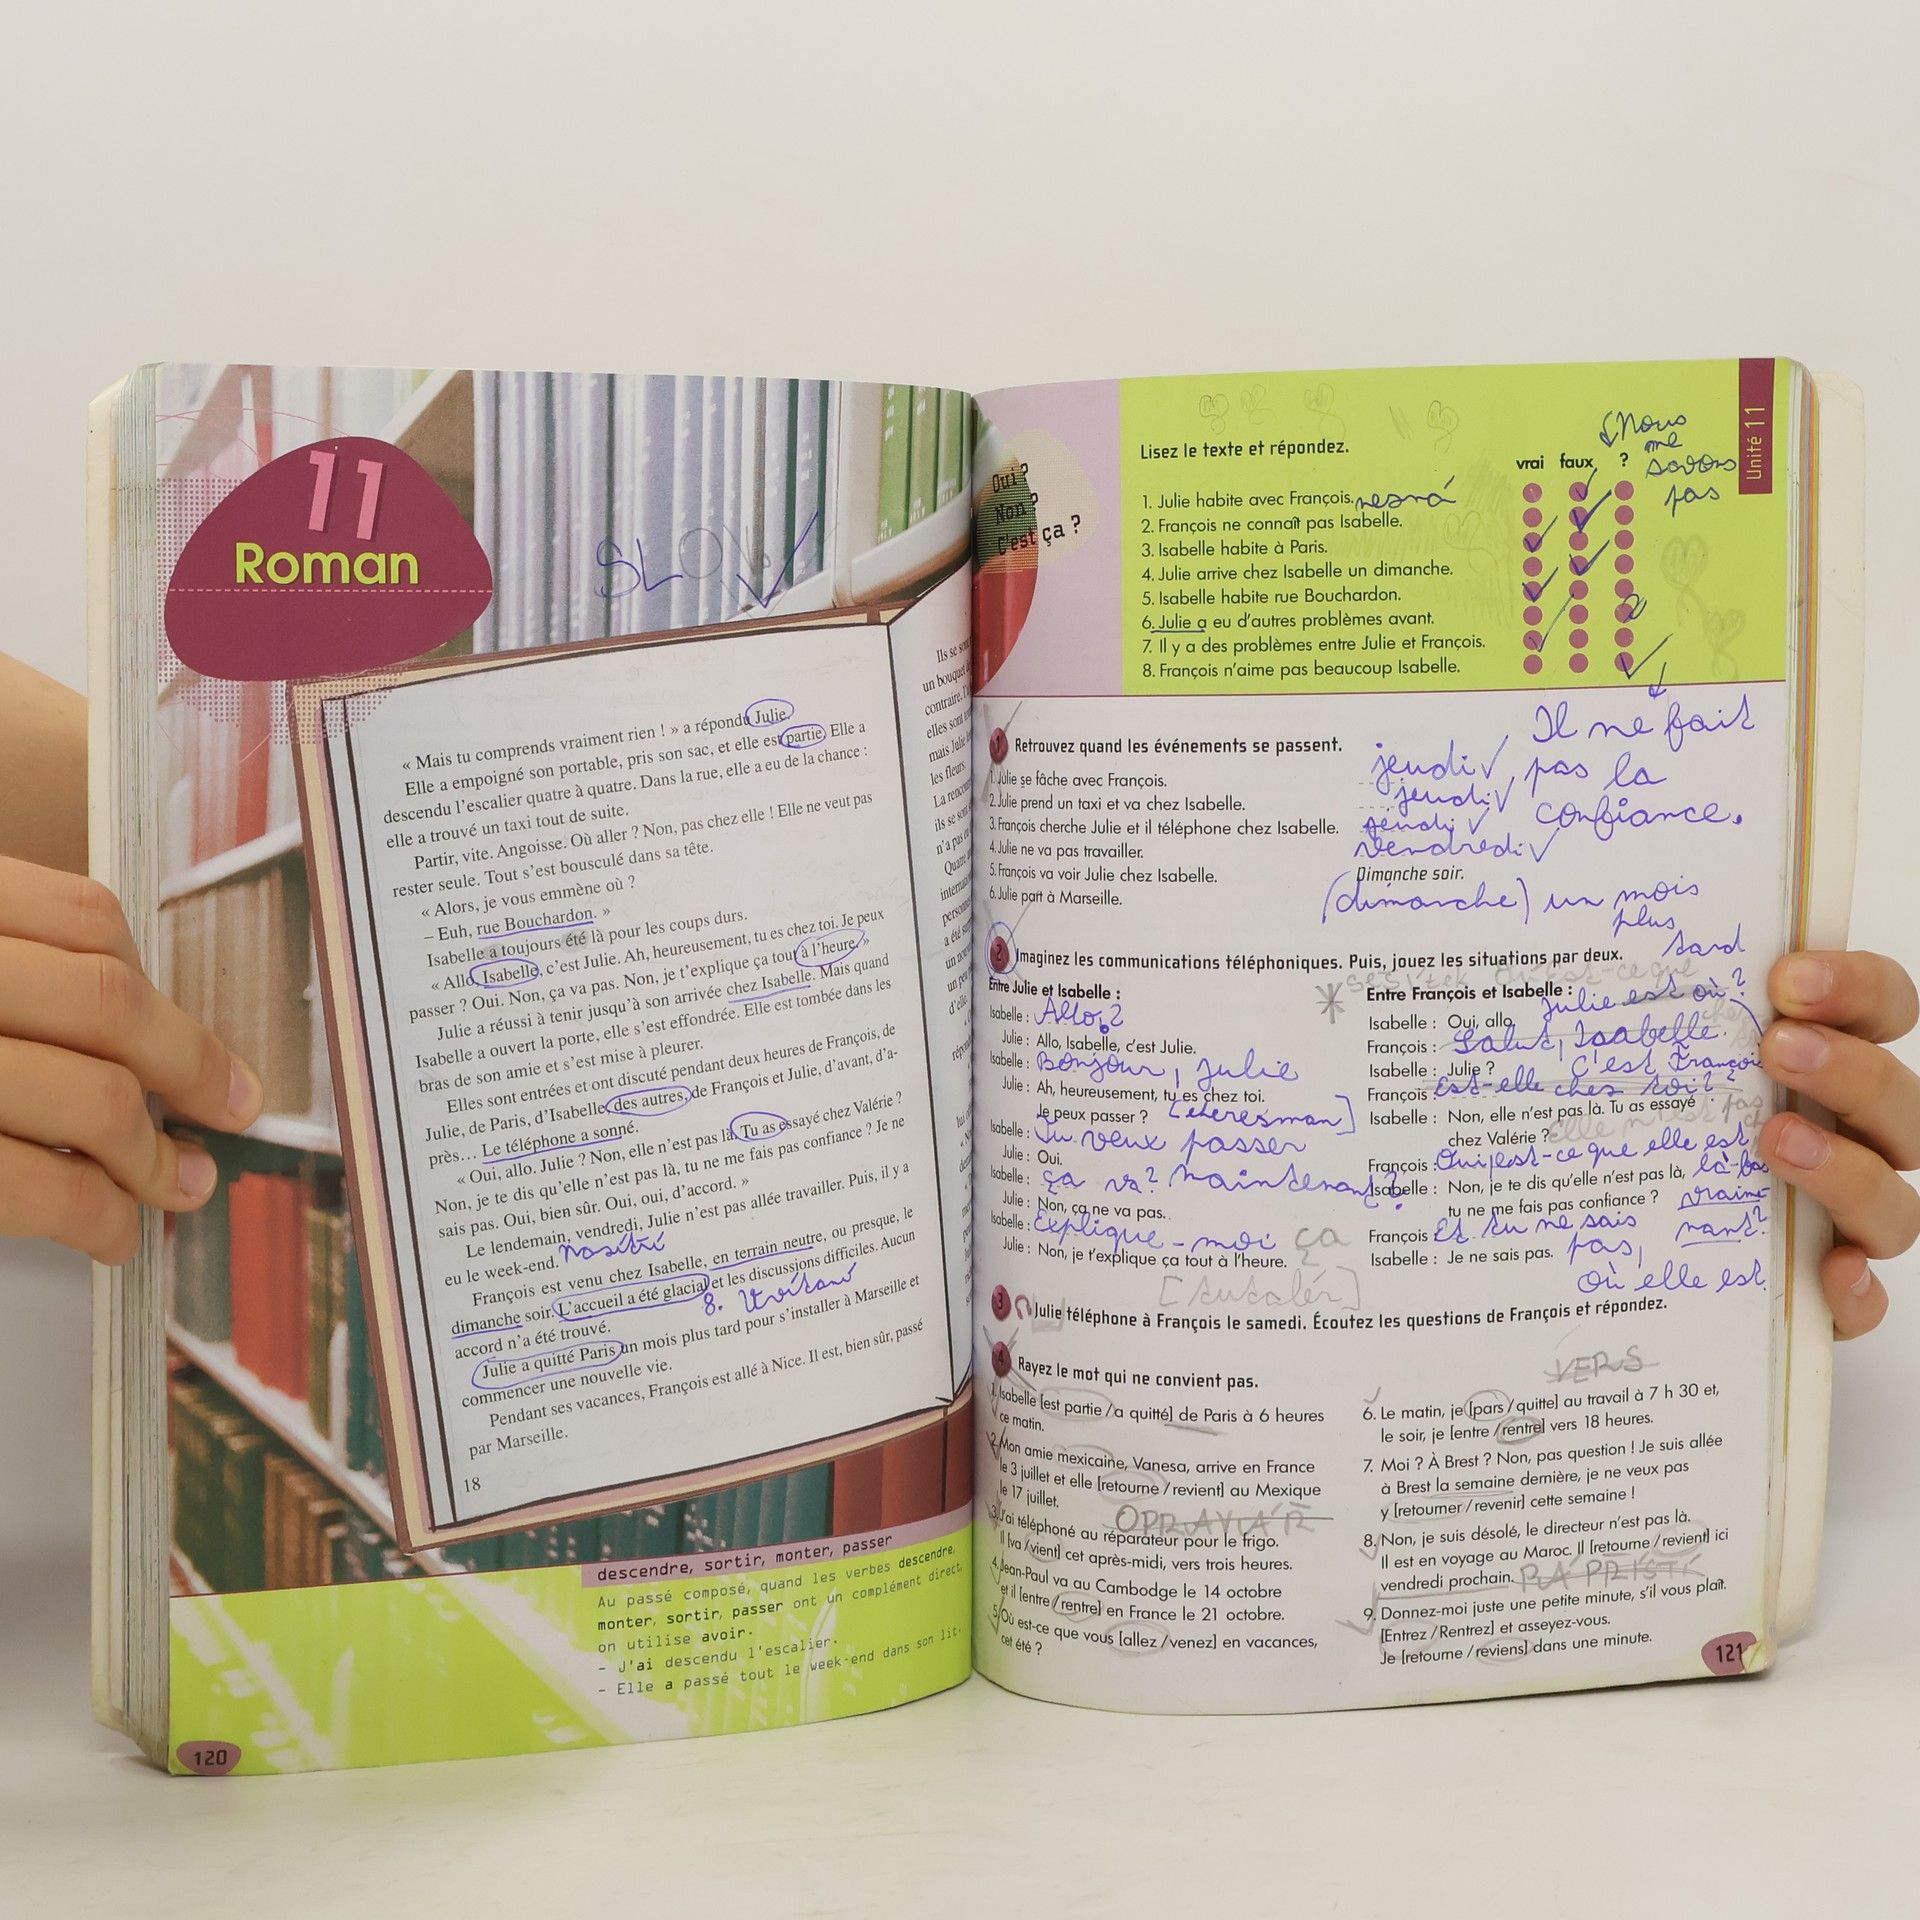 11
Roman
SLOV
« Mais tu comprends vraiment rien ! » a répondu Julie.
Elle a empoigné son portable, pris son sac, et elle est partie. Elle a
descendu l'escalier quatre à quatre. Dans la rue, elle a eu de la chance :
elle a trouvé un taxi tout de suite.
Partir, vite. Angoisse. Où aller ? Non, pas chez elle ! Elle ne veut pas
rester seule. Tout s'est bousculé dans sa tête.
« Alors, je vous emmène où ?
– Euh, rue Bouchardon. »
Isabelle a toujours été là pour les coups durs.
« Allo, Isabelle, c'est Julie. Ah, heureusement, tu es chez toi. Je peux
passer ? Oui. Non, ça va pas. Non, je t'explique ça tout à l'heure. »
Julie a réussi à tenir jusqu'à son arrivée chez Isabelle. Mais quand
Isabelle a ouvert la porte, elle s'est effondrée. Elle est tombée dans les
bras de son amie et s'est mise à pleurer.
Elles sont entrées et ont discuté pendant deux heures de François, de
Julie, de Paris, d'Isabelle, des autres, de François et Julie, d'avant, d'a-
près... Le téléphone a sonné.
« Oui, allo. Julie ? Non, elle n'est pas là. Tu as essayé chez Valérie ?
Non, je te dis qu'elle n'est pas là, tu ne me fais pas confiance ? Je ne
sais pas. Oui, bien sûr. Oui, oui, d'accord. »
Le lendemain, vendredi, Julie n'est pas allée travailler. Puis, il y a
eu le week-end.
François est venu chez Isabelle, en terrain neutre, ou presque, le
dimanche soir. L'accueil a été glacial et les discussions difficiles. Aucun
8.
accord n'a été trouvé.
Julie a quitté Paris un mois plus tard pour s'installer à Marseille et
commencer une nouvelle vie.
Pendant ses vacances, François est allé à Nice. Il est, bien sûr, passé
par Marseille.
18
descendre, sortir, monter, passer
Au passé composé, quand les verbes descendre,
monter, sortir, passer ont un complément direct,
on utilise avoir.
– J'ai descendu l'escalier.
– Elle a passé tout le week-end dans son lit.
120
Oui ?
Non ?
C'est ça ?
Unité 11
Lisez le texte et répondez.
vrai faux ?
Nous
me
savons
pas
1. Julie habite avec François.
2. François ne connaît pas Isabelle.
3. Isabelle habite à Paris.
4. Julie arrive chez Isabelle un dimanche.
5. Isabelle habite rue Bouchardon.
6. Julie a eu d'autres problèmes avant.
7. Il y a des problèmes entre Julie et François.
8. François n'aime pas beaucoup Isabelle.
Il ne fait
pas la
confiance.
1 Retrouvez quand les événements se passent.
1. Julie se fâche avec François. jeudi
2. Julie prend un taxi et va chez Isabelle. jeudi
3. François cherche Julie et il téléphone chez Isabelle. jeudi
4. Julie ne va pas travailler. vendredi
5. François va voir Julie chez Isabelle. Dimanche soir.
6. Julie part à Marseille. (dimanche) un mois
plus
tard
2 Imaginez les communications téléphoniques. Puis, jouez les situations par deux.
Entre Julie et Isabelle :
Isabelle : Allo?
Julie : Allo, Isabelle, c'est Julie.
Isabelle : Bonjour, Julie
Julie : Ah, heureusement, tu es chez toi.
Je peux passer ?
Isabelle : Tu veux passer
Julie : Oui.
Isabelle : ça va? maintenant?
Julie : Non, ça ne va pas.
Isabelle : Explique-moi ça
Julie : Non, je t'explique ça tout à l'heure.
[tutalér]
Entre François et Isabelle :
Julie est où?
Isabelle : Oui, allo.
François : Salut, Isabelle.
C'est François
Isabelle : Julie ?
François : Est-elle chez toi?
Isabelle : Non, elle n'est pas là. Tu as essayé
chez Valérie ?
François : Oui, est-ce que elle est
là-bas
Isabelle : Non, je te dis qu'elle n'est pas là,
tu ne me fais pas confiance ?
François : Et tu ne sais
pas,
Isabelle : Je ne sais pas.
où elle est
3 Julie téléphone à François le samedi. Écoutez les questions de François et répondez.
4 Rayez le mot qui ne convient pas.
VERS
1. Isabelle [est partie / a quitté] de Paris à 6 heures
ce matin.
2. Mon amie mexicaine, Vanesa, arrive en France
le 3 juillet et elle [retourne / revient] au Mexique
le 17 juillet.
OPRAVIÁŘ
3. J'ai téléphoné au réparateur pour le frigo.
Il [va / vient] cet après-midi, vers trois heures.
4. Jean-Paul va au Cambodge le 14 octobre
et il [entre / rentre] en France le 21 octobre.
5. Où est-ce que vous [allez / venez] en vacances,
cet été ?
6. Le matin, je [pars / quitte] au travail à 7 h 30 et,
le soir, je [entre / rentre] vers 18 heures.
7. Moi ? À Brest ? Non, pas question ! Je suis allée
à Brest la semaine dernière, je ne veux pas
y [retourner / revenir] cette semaine !
8. Non, je suis désolé, le directeur n'est pas là.
Il est en voyage au Maroc. Il [retourne / revient] ici
vendredi prochain.
9. Donnez-moi juste une petite minute, s'il vous plaît.
[Entrez / Rentrez] et asseyez-vous.
Je [retourne / reviens] dans une minute.
121